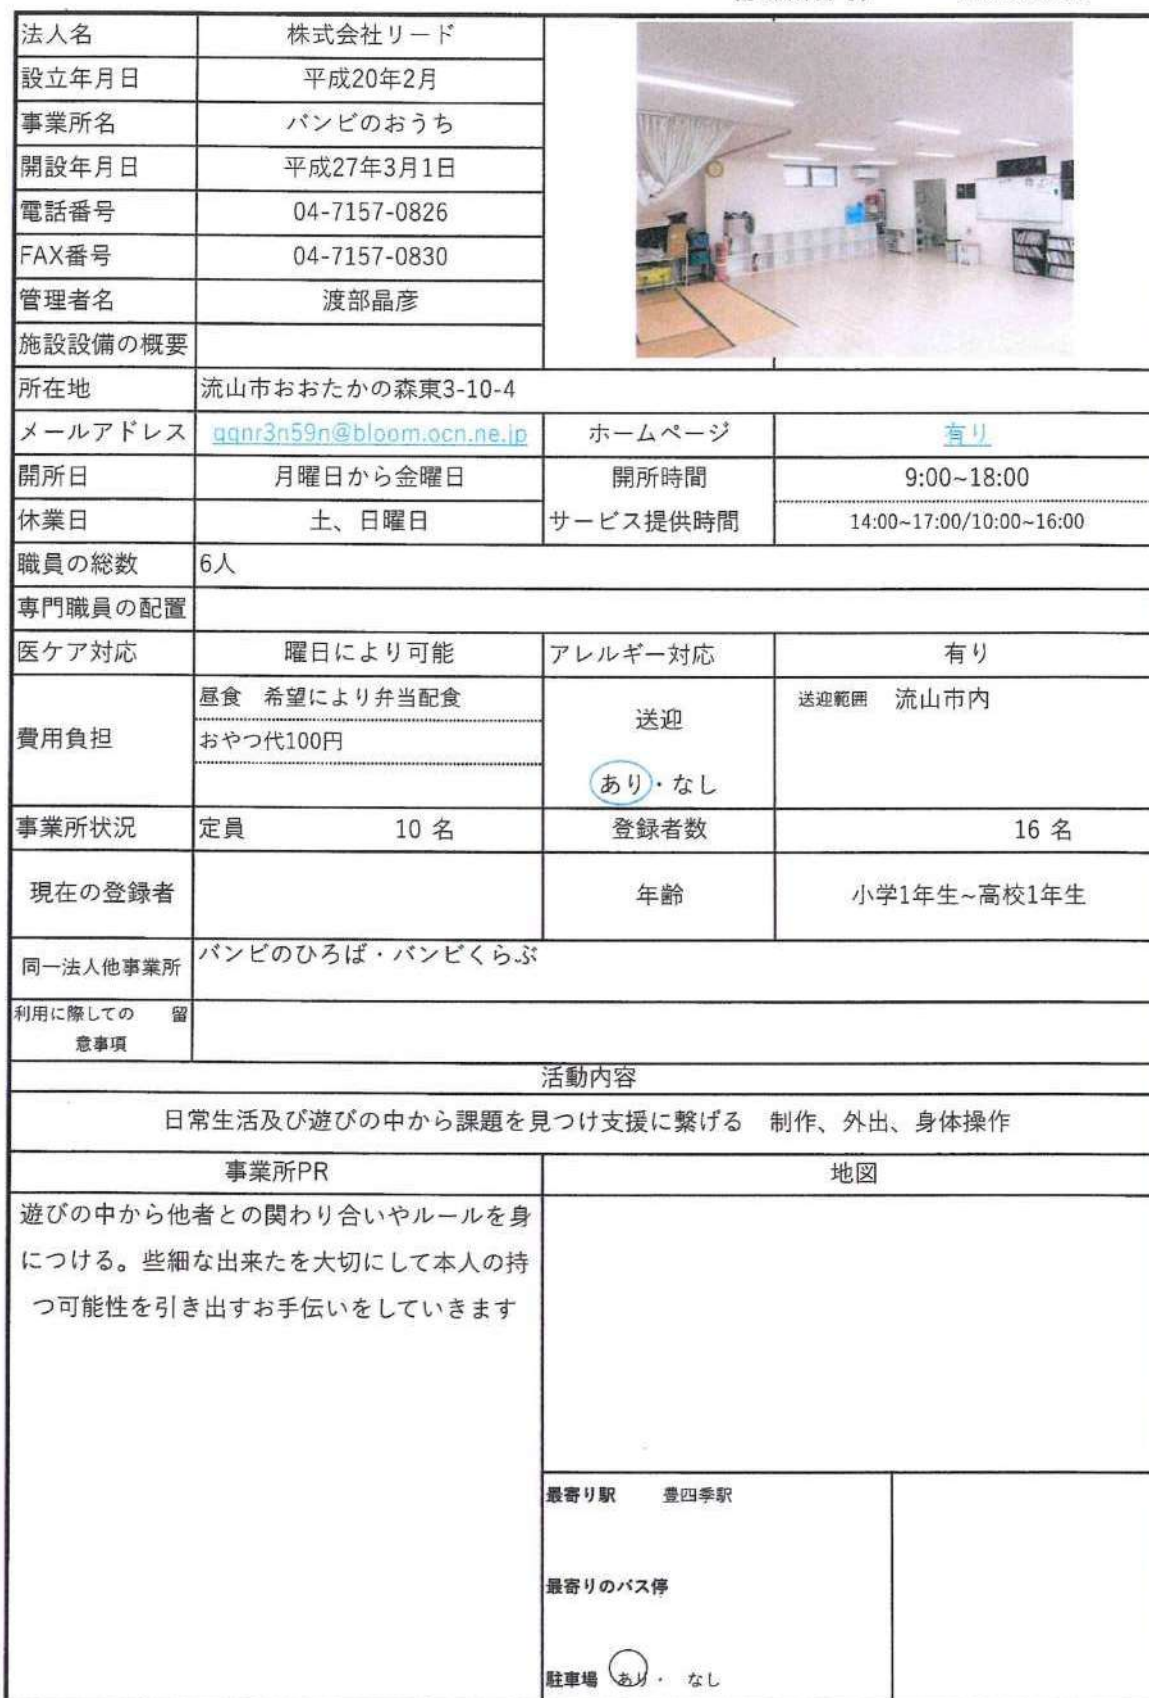 法人名 株式会社リード
設立年月日 平成20年2月
事業所名 バンビのおうち
開設年月日 平成27年3月1日
電話番号 04-7157-0826
FAX番号 04-7157-0830
管理者名 渡部晶彦
施設設備の概要
所在地 流山市おおたかの森東3-10-4
メールアドレス gqnr3n59n@bloom.ocn.ne.jp ホームページ 有り
開所日 月曜日から金曜日 開所時間 9:00~18:00
休業日 土、日曜日 サービス提供時間 14:00~17:00/10:00~16:00
職員の総数 6人
専門職員の配置
医ケア対応 曜日により可能 アレルギー対応 有り
費用負担 昼食 希望により弁当配食 送迎 送迎範囲 流山市内
おやつ代100円
あり・なし
事業所状況 定員 10 名 登録者数 16 名
現在の登録者 年齢 小学1年生~高校1年生
同一法人他事業所 バンビのひろば・バンビくらぶ
利用に際しての 留
意事項
活動内容
日常生活及び遊びの中から課題を見つけ支援に繋げる 制作、外出、身体操作
事業所PR 地図
遊びの中から他者との関わり合いやルールを身
につける。些細な出来たを大切にして本人の持
つ可能性を引き出すお手伝いをしていきます
最寄り駅 豊四季駅
最寄りのバス停
駐車場 あり・ なし